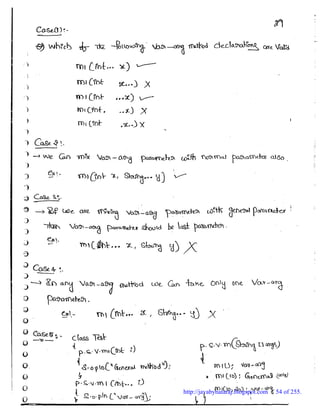 39
Case(1):-
which of the following var-arg method declarations are valid
m1 (int... x) ✓
m1 (int x...) X
m1 (int ...x) ✓
m1 (int, ..x) X
m1 (int .x..) X
Case 2:-
→ we can mix var-arg parameter with normal parameter also.
Ex:- m1(int x, String... y) ✓
Case 3:-
→ If we are mixing var-arg parameter with general parameter
then var-arg parameter should be last parameter.
Ex:- m1(int... x, String y) X
Case 4:-
→ In any var-arg method we can take only one var-arg
parameter.
Ex:- m1 (int... x, String... y) X
Case 5:- class Test
{
p.s.v.m1(int i)
{
S.o.pln("General method");
}
p.s.v.m1(int... i)
{
S.o.pln("var-arg");
p.s.v.m(String[] args)
{
m1(); var-arg
m1(10); General
http://javabynataraj.blogspot.com 54 of 255.
}